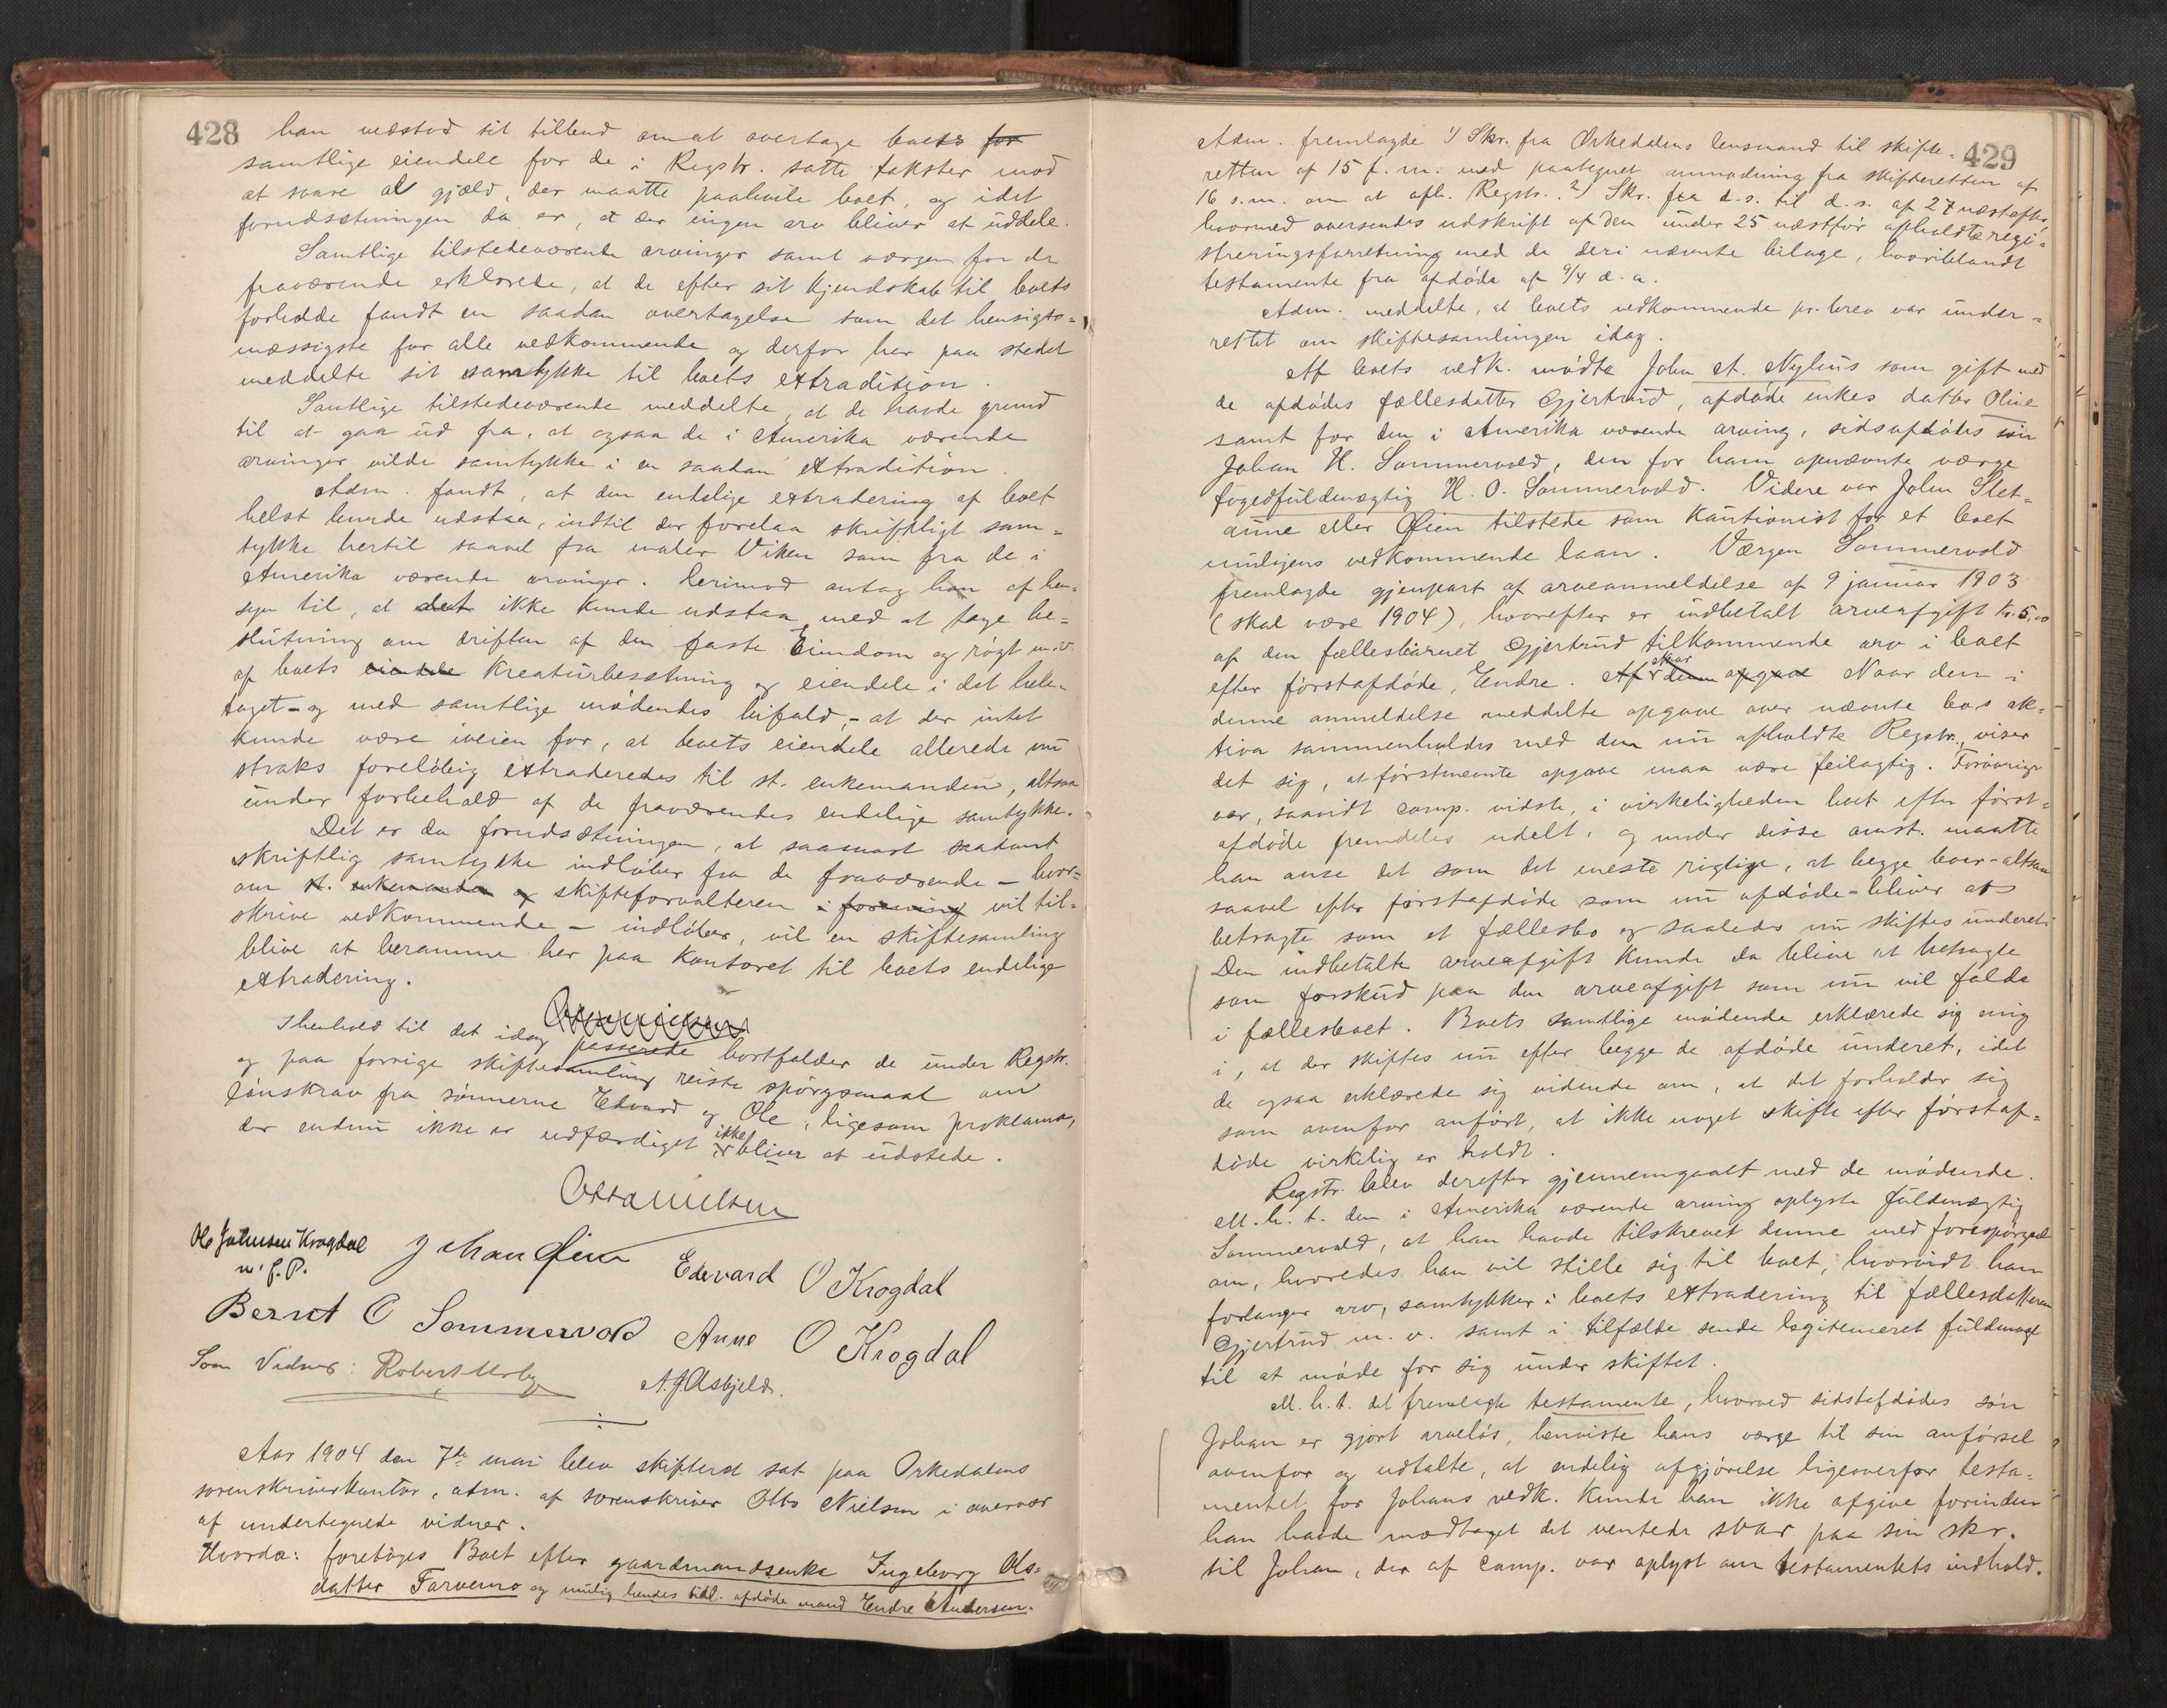 428
han vedstod sit tilbud om at overtage boets for
samtlige eiendele for de i Regstr. satte takster mod
at svare al gjæld, der maatte paahvile boet, og idet
forudsætningen da er, at der ingen arv bliver at uddele.
Samtlige tilstedeværende arvinger samt værgen for de
fraværende erklærede, at de efter sit kjendskab til boets
forholde fandt en saadan overtagelse som det hensigts=
mæssigste for alle vedkommende og derfor her paa stedet
meddelte sit samtykke til boets extradition.
Samtlige tilstedeværende meddelte, at de havde grund
til at gaa ud fra, at ogsaa de i Amerika værende
arvinger vilde samtykke i en saadan extradition.
Adm. fandt, at den endelige extradering af boet
helst burde udstaa, indtil der forelaa skriftligt sam=
tykke hertil saavel fra maler Viken som fra de i
Amerika værende arvinger. Derimod antog han af hen=
syn til, at det ikke kunde udstaa med at tage be=
slutning om driften af den faste Eiendom og røgt m. v.
af boets eiendele Kreaturbesætning og eiendele i det hele=
taget - og med samtlige mødendes bifald, - at der intet
kunde være iveien for, at boets eiendele allerede nu
straks foreløbig extraderedes til st. enkemanden, altsaa
under forbehold af de fraværendes endelige samtykke.
Det er da forudsætningen, at saasnart saadant
skriftlig samtykke indløber fra de fraværende - hvor=
om st. enkemanden og skifteforvalteren i forening vil til=
skrive vedkommende - indløber, vil en skiftesamling
blive at beramme her paa Kontoret til boets endelige
extradering.
I henhold til det idag passerede bortfalder de under Regstr.
og paa forrige skiftesamling reiste spørgsmaal om
lønskrav fra sønnerne Edvard og Ole, ligesom proklama,
der endnu ikke er udfærdiget ikke bliver at udstede.
Otto Nielsen
Ole Johnsen Krogdal
m. f. P.
Johan Øien
Edevard O Krogdal
Bernt O Sommervold
Anne O Krogdal
Som Vidner: Robert Moby
A. J. Asbjeld.
Aar 1904 den 7de mai blev skifteret sat paa Orkedalens
sorenskriverkontor, adm. af sorenskriver Otto Nielsen i overvær
af undertegnede vidner.
Hvorda: foretoges Boet efter gaardmandsenke Ingeborg Ols=
datter Farvemo og mulig hendes tidl. afdøde mand Endre Andersen.
429
Adm. fremlagde 1) Skr. fra Orkedalens lensmand til skifte=
retten af 15 f. m. med paategnet anmodning fra skifteretten af
16 s. m. om at afh. Regstr. 2) Skr. fra d. s. til d. s. af 27 næstefter,
hvormed oversendes udskrift af den under 25 næstfør afholdte regi=
streringsforretning med de deri nævnte bilage, hvoriblandt
testamente fra afdøde af 9/4 d. a.
Adm. meddelte, at boets vedkommende pr. brev var under=
rettet om skiftesamlingen idag.
Af boets vedk. mødte John A. Nyhus som gift med
de afdødes fællesdatter Gjertrud, afdøde enkes datter Oline
samt for den i Amerika værende arving, sidsafdødes søn
Johan H. Sommervold, den for ham opnævnte værge
fogedfuldmægtig H. O. Sommervold. Videre var John Slet=
aune eller Øien tilstede som Kautionist for et boet
muligens vedkommende laan. Værgen Sommervold
fremlagde gjenpart af arveanmeldelse af 9 januar 1903
(skal være 1904), hvorefter er indbetalt arveafgift kr. 5,00
af den fællesbarnet Gjertrud tilkommende arv i boet
efter førstafdøde, Endre. Af denne opgave Naar den i
denne anmeldelse meddelte opgave over nævnte bos ak=
tiva sammenholdes med den nu afholdte Regstr., viser
det sig, at førstnævnte opgave maa være feilagtig. Forøvrigt
var, saavidt comp. vidste, i virkeligheden boet efter først=
afdøde fremdeles udelt, og under disse omst. maatte
han anse det som det meste rigtige, at begge boer - altsaa
saavel efter førstafdøde som nu afdøde - bliver at
betragte som et fællesbo og saaledes nu skiftes underet.
Den indbetalte arveafgift kunde da blive at betragte
som forskud paa den arveafgift som nu vil falde
i fællesboet. Boets samtlige mødende erklærede sig enig
i, at der skiftes nu efter begge de afdøde underet, idet
de ogsaa erklærede sig vidende om, at det forholder sig
som ovenfor anført, at ikke noget skifte efter førstaf=
døde virkelig er holdt.
Regstr. blev derefter gjennemgaaet med de mødende.
M. h. t. den i Amerika værende arving oplyste fuldmægtig
Sommervold, at han havde tilskrevet denne med forespørgsel
om, hvoredes han vil stille sig til boet, hvorvidt han
forlanger arv, samtykker i boets extradering til fællesdatteren
Gjertrud m. v. samt i tilfælde sende legitimeret fuldmagt
til at møde for sig under skiftet.
M. h. t. det fremlagte testamente, hvorved sidstafdødes søn
Johan er gjort arveløs, henviste hans værge til sin anførsel
ovenfor og udtalte, at endelig afgjørelse ligeoverfor testa=
mentet for Johans vedk. kunde han ikke afgive forinden
han havde modtaget det ventede svar paa sin skr.
til Johan, der af comp. var oplyst om testamentets indhold.